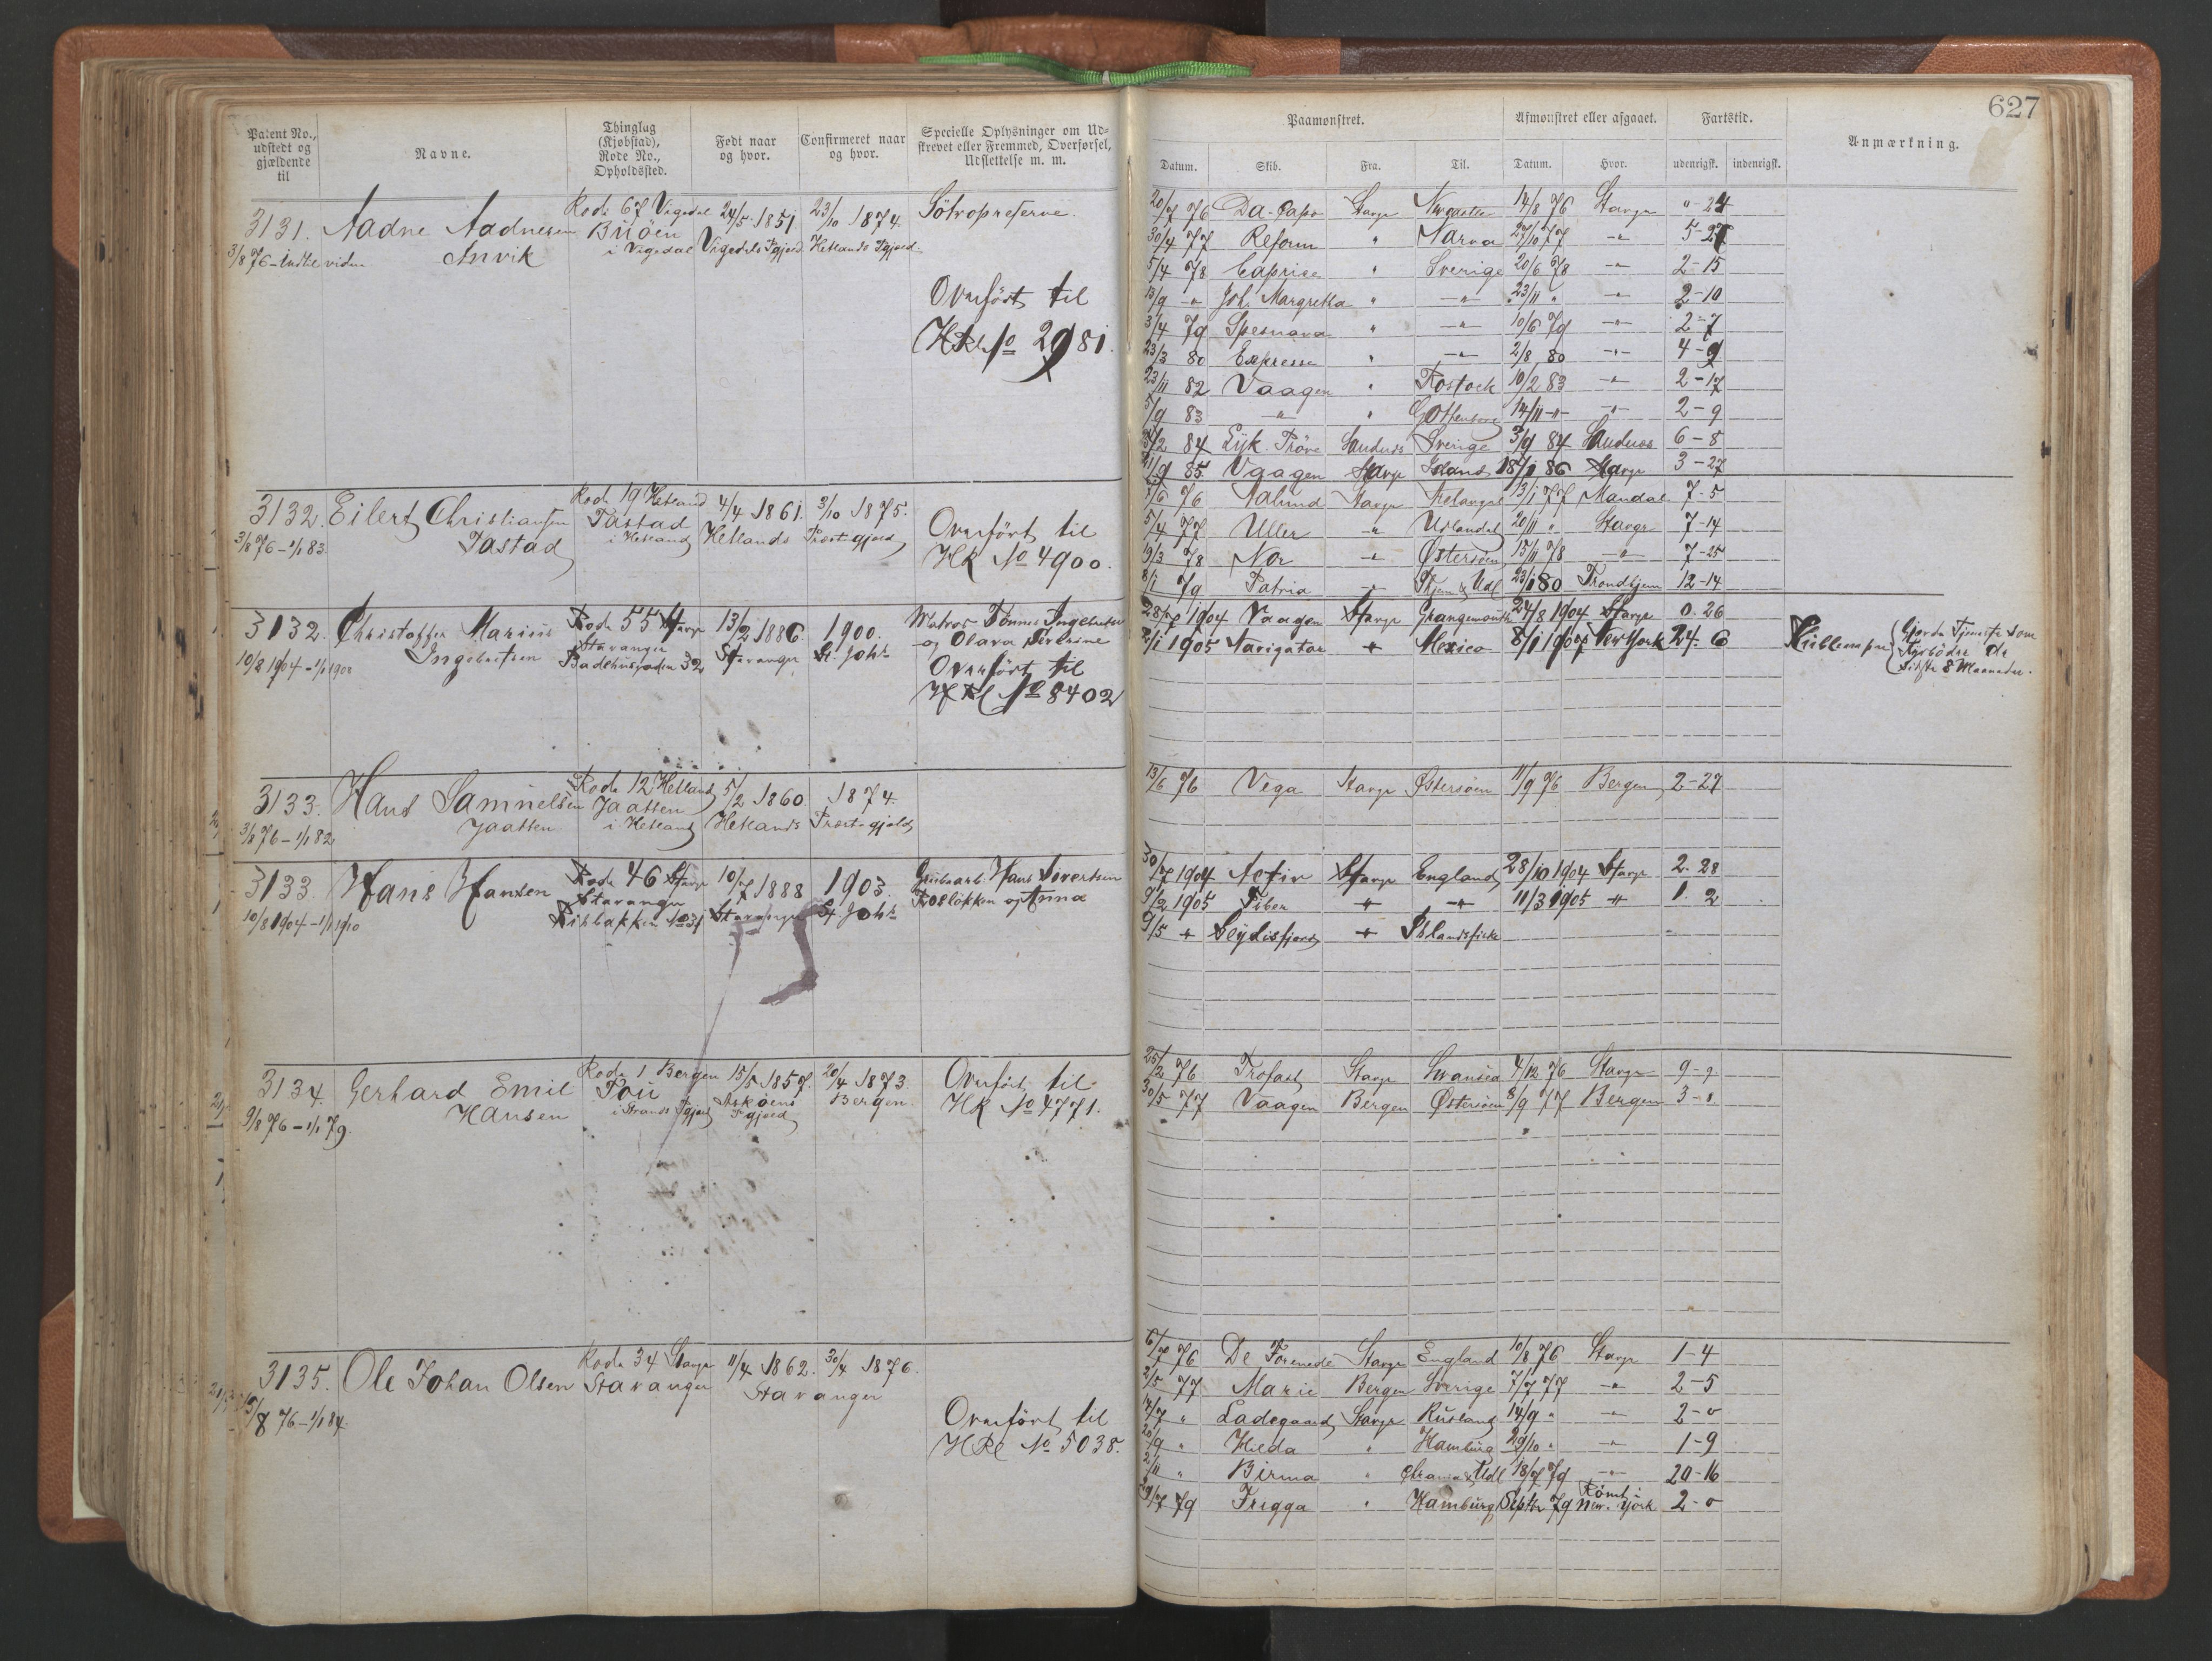 627
Patent No., udstedt og gjældende til
Navne.
Thinglag (Kjøbstad), Rode No., Opholdssted.
Født naar og hvor.
Confirmeret naar og hvor.
Specielle Oplysninger om Udskrevet eller Fremmed, Overførsel, Udslettelse m. m.
Paamønstret.
Afmønstret eller afgaaet.
Fartstid.
Anmærkning.
Datum. Skib. Fra. Til. Datum. Hvor. udenrigsk. indenrigsk.
3131. Aadne Aadnesen Rode 67 Vigedal 24/5 1851 23/10 1874. Götropreserve.
3/8 76 - indtil videre Anvik Buöen i Vigedal Vigedals Pgjeld Hetlands Pgjeld
Overfört til
HRl No 2981.
20/7 76 Da-Capo Stavgr 14/8 76 Stavgr " - 24
30/4 77 Reform " Narva 27/10 77 -"- 5-27
5/4 78 Caprice " Sverige 20/6 78 -"- 2-15
13/9 -"- Joh. Margretha " -"- 23/11 " -"- 2-10
3/4 79 Spesnova " -"- 10/6 79 -"- 2-7
23/3 80 Express " -"- 2/8 80 -"- 4-9
23/11 82 Vaagen " Rostock 10/2 83 -"- 2-17
5/9 83 -"- " Gottenborg 14/11 -"- -"- 2-9
84 Lyk. Pröve Sandnes Sverige 3/9 84 Sandnes 6-8
85 Vaagen Stavgr Island 18/1 86 Stavgr 3-27
3132. Eilert Christiansen Rode 19 Hetland 4/4 1861. 3/10 1875.
3/8 76 - 1/1 83. Tastad Tastad i Hetland Hetlands Præstegjeld
Overfört til
HR No 4900.
76 Nalund Stavgr 13/1 77 Mandal 7-5
5/4 77 Uller -"- Udlandet 20/11 " Stavgr 7-14
19/3 78 Nor -"- Østersöen 15/11 78 -"- 7-25
8/1 79 Patria -"- Thjem & Udl 23/1 80 Trondhjem 12-14
3132. Christoffer Marius Rode 55 Stavgr 13/2 1886. 1900. Matros Tönnes Ingebretsen
10/8 1904 - 1/1 Ingebretsen Stavanger Badehusgaden 32 Stavanger St. Johs og Olava Serine
Overfört til
HRl No 8402
1904 Vaagen Stavgr Grangemouth 24/8 1904 Stavgr 0. 26
1905 Navigator -"- Mexico 8/1 1907 New York 24. 6
Gjorde Tjeneste som
Fyrböder de
sidste 8 Maaneder.
3133. Hans Samuelsen Rode 12 Hetland 5/2 1860 1874.
3/8 76 - 1/1 82 Jaatten Jaatten i Hetland Hetlands Præstegjeld
13/6 76 Vega Stavgr Østersöen 11/9 76 Bergen 2-27
3133. Hans Hansen Rode 46 Stavgr 10/7 1888 1903. Hans Sivertsen
10/8 1904 - 1/1 1910 Stavanger No 31 Stavanger St. Johs og Anna
30/7 1904 Activ Stavgr England 28/10 1904 Stavgr 2. 28
9/2 1905 Tiber -"- -"- 11/3 1905 -"- 1. 2
9/5 -"- Seydisfjord -"- Islandsfiske
3134. Gerhard Emil Rode 1 Bergen 15/5 1857. 20/4 1873.
9/8 76 - 1/1 79. Hansen Tou i Strands Pgjeld Askøens Pgjeld Bergen.
Overfört til
HR No 4771.
25/2 76 Trofast Stavgr Swansea 4/12 76 Stavgr 9-9
30/5 77 Vaagen Bergen Østersöen 8/9 77 Bergen 3-8
3135. Ole Johan Olsen Rode 34 Stavgr 11/4 1862. 30/4 1876.
76 - 1/1 84. Stavanger Stavanger
Overfört til
HRl No 5038.
6/7 76 De Forenede Stavgr England 10/8 76 Stavgr 1-4
2/5 77 Marie Bergen Sverige 7/7 77 -"- 2-5
14/7 " Ladegaard Stavgr Rusland 14/9 " -"- 2-0
20/9 " Hilda " Hamburg 29/10 " -"- 1-9
2/11 " Birma " Chrania & Udl 18/7 79 -"- 20-16
79 Frigga " Hamburg Septbr 79 Römt: New-York 2-0